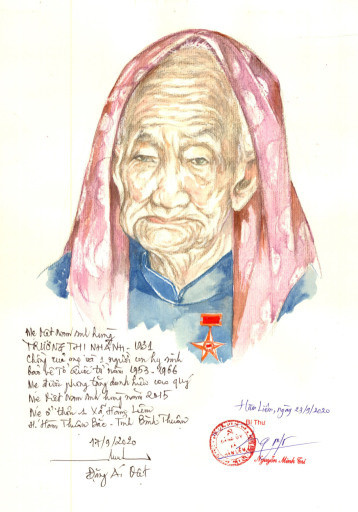 Mẹ Việt Nam anh hùng
TRƯƠNG THỊ NHÀNH - 1931
Chồng của mẹ và 1 người con hy sinh
Bảo vệ Tổ Quốc từ năm 1953 - 1966
Mẹ được phong tặng danh hiệu cao quý
Mẹ Việt Nam anh hùng năm 2015
Mẹ ở thôn 1 Xã Hàm Liêm
H. Hàm Thuận Bắc - Tỉnh Bình Thuận
17/9/2020
Đặng Ái Việt
Hàm Liêm, ngày 23/9/2020
Bí Thư
Nguyễn Minh Trí